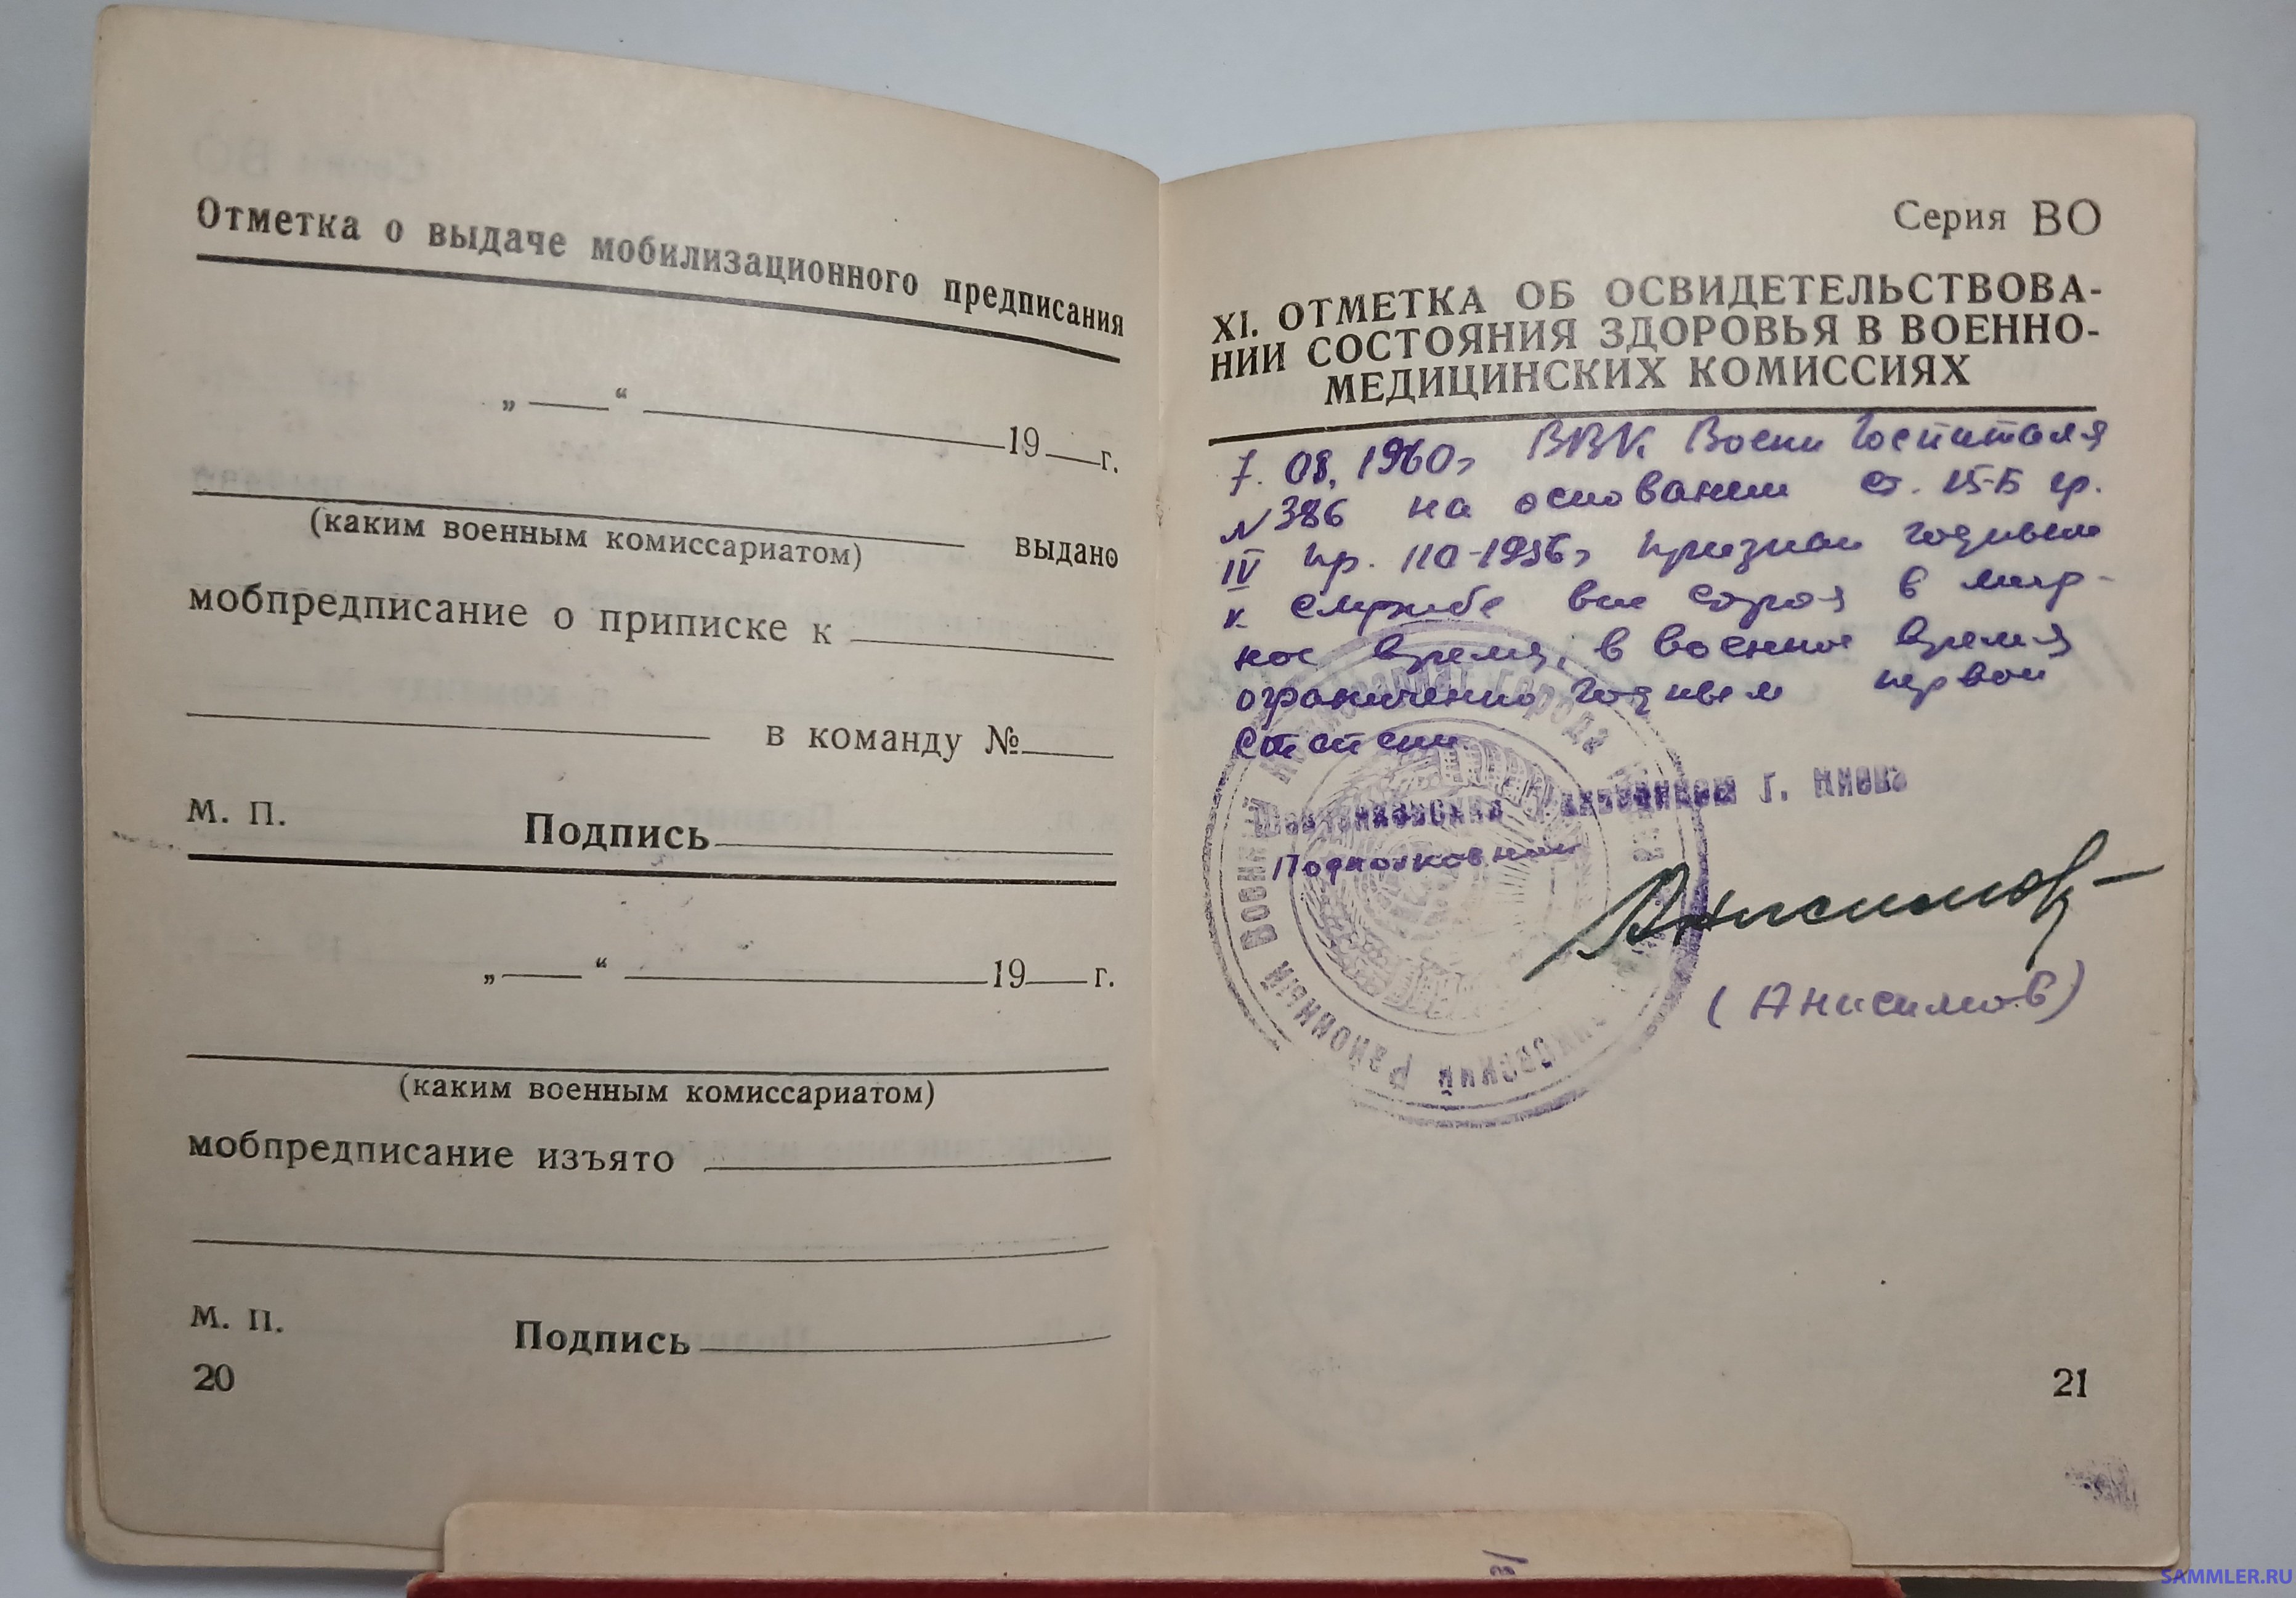 Отметка о выдаче мобилизационного предписания
„ “ 19 г.
(каким военным комиссариатом) выдано
мобпредписание о приписке к
в команду №
М. П. Подпись
„ “ 19 г.
(каким военным комиссариатом)
мобпредписание изъято
М. П. Подпись
20
Серия ВО
XI. ОТМЕТКА ОБ ОСВИДЕТЕЛЬСТВОВА-
НИИ СОСТОЯНИЯ ЗДОРОВЬЯ В ВОЕННО-
МЕДИЦИНСКИХ КОМИССИЯХ
7. 08. 1960г ВВК Военн Госпиталя
№ 386 на основании ст. 15-Б гр.
IV пр. 110-1956г признан годным
к службе вне строя в мир-
ное время, в военное время
ограниченно годным первой
степени
г. Киева
Подполковник
Анисимов
(Анисимов)
Районный Военный Комиссариат города
21
SAMMLER.RU